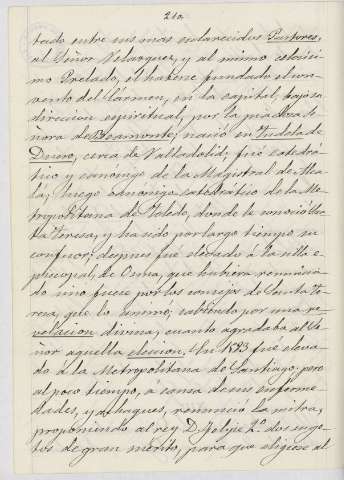 210.
tado entre sus mas esclarecidos Pastores,
al Señor Velazquez, y al mismo celosísi
mo Prelado, el haberse fundado el con
vento del Cármen, en la capital, bajo su
direccion espiritual, por la piadosa Se
ñora de Beamonte; nació en Tudela de
Duero, cerca de Valladolid; fué catedrá
tico y canónigo de la Magistral de Alca
lá; luego canónigo catedrático de la Me
tropolitana de Toledo, donde le conoció San
ta Teresa, y ha sido por largo tiempo su
confesor; despues fué elevado á la silla e
piscopal, de Osma, que hubiera renuncia
do sino fuese por los consejos de Santa Te
resa, que lo animó, sabiendo por una re
velacion divina, cuanto agradaba al Se
ñor aquella eleccion. En 1583 fué eleva
do á la Metropolitana de Santiago; pero
al poco tiempo, á causa de sus enferme
dades, y achaques, renunció la mitra,
proponiendo al rey D. Felipe 2º dos suge
tos de gran mérito, para que eligiese al